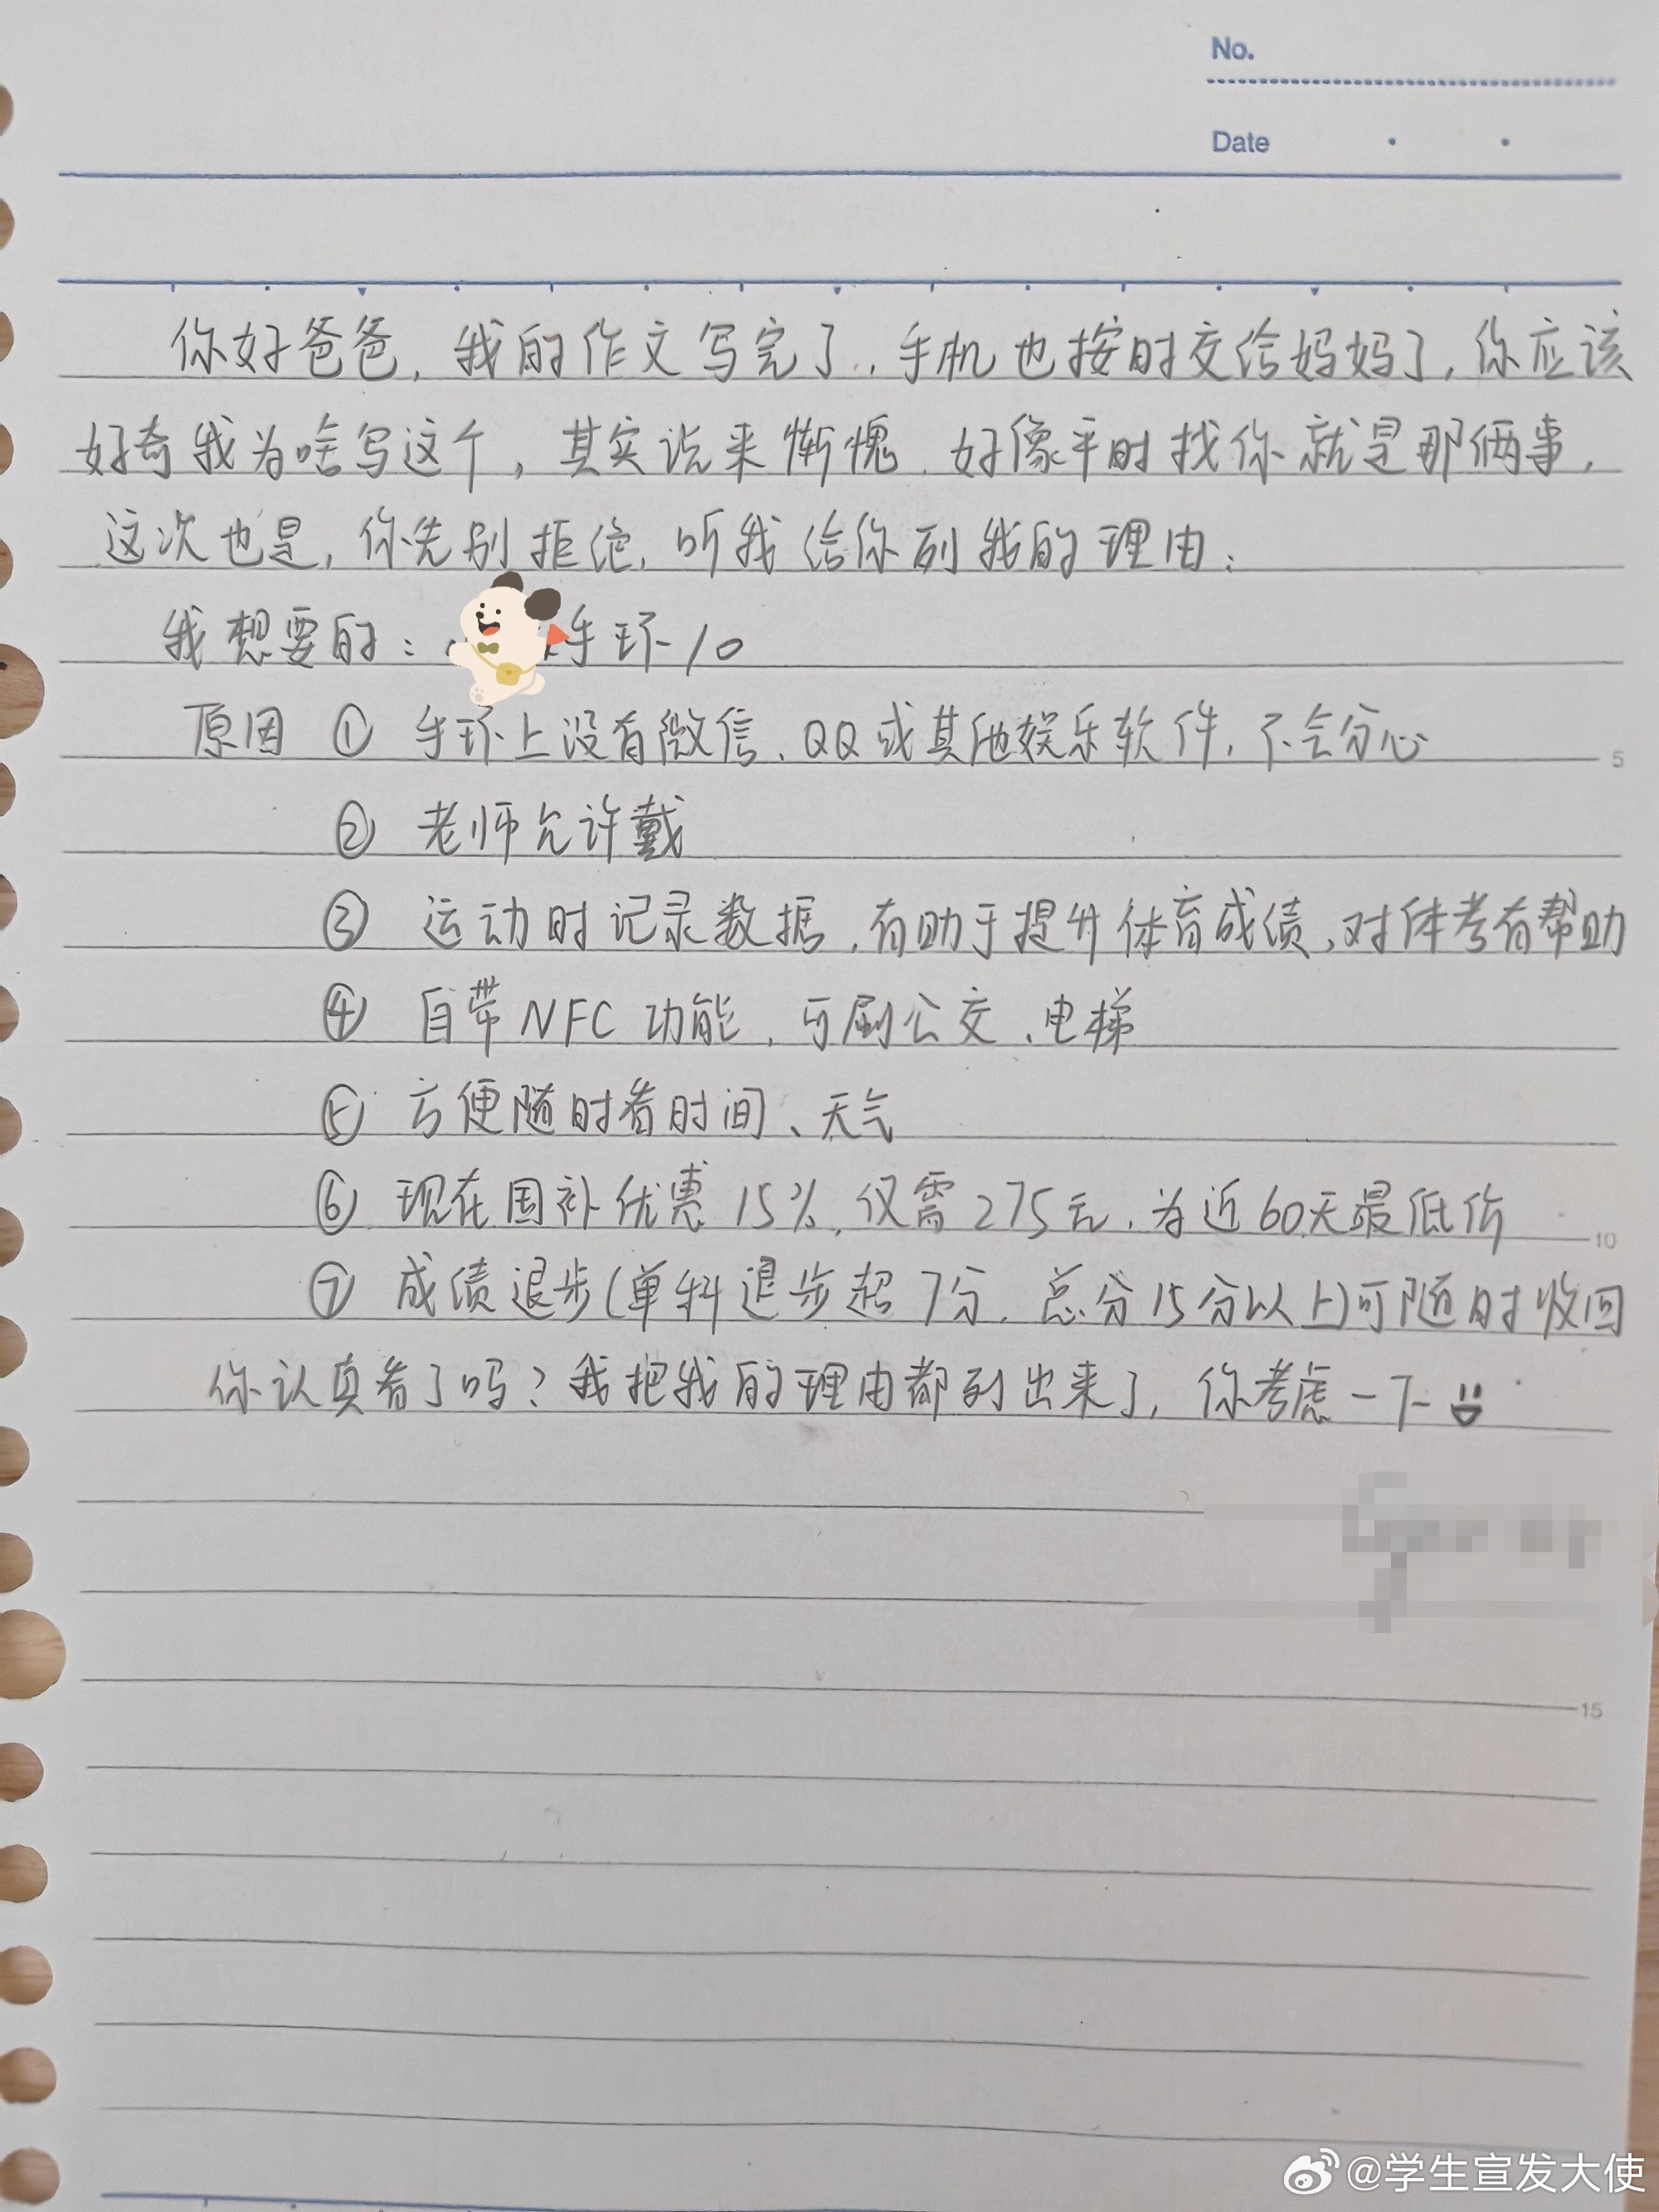 No.
Date
你好爸爸，我的作文写完了，手机也按时交给妈妈了，你应该
好奇我为啥写这个，其实说来惭愧，好像平时找你就是那俩事，
这次也是，你先别拒绝，听我给你列我的理由：
我想要的：手环10
原因 ① 手环上没有微信、QQ或其他娱乐软件，不会分心
5
② 老师允许戴
③ 运动时记录数据，有助于提升体育成绩，对体考有帮助
④ 自带NFC功能，可刷公交、电梯
⑤ 方便随时看时间、天气
⑥ 现在国补优惠15%，仅需275元，为近60天最低价
10
⑦ 成绩退步(单科退步超7分，总分15分以上)可随时收回
你认真看了吗？我把我的理由都列出来了，你考虑一下
15
@学生宣发大使